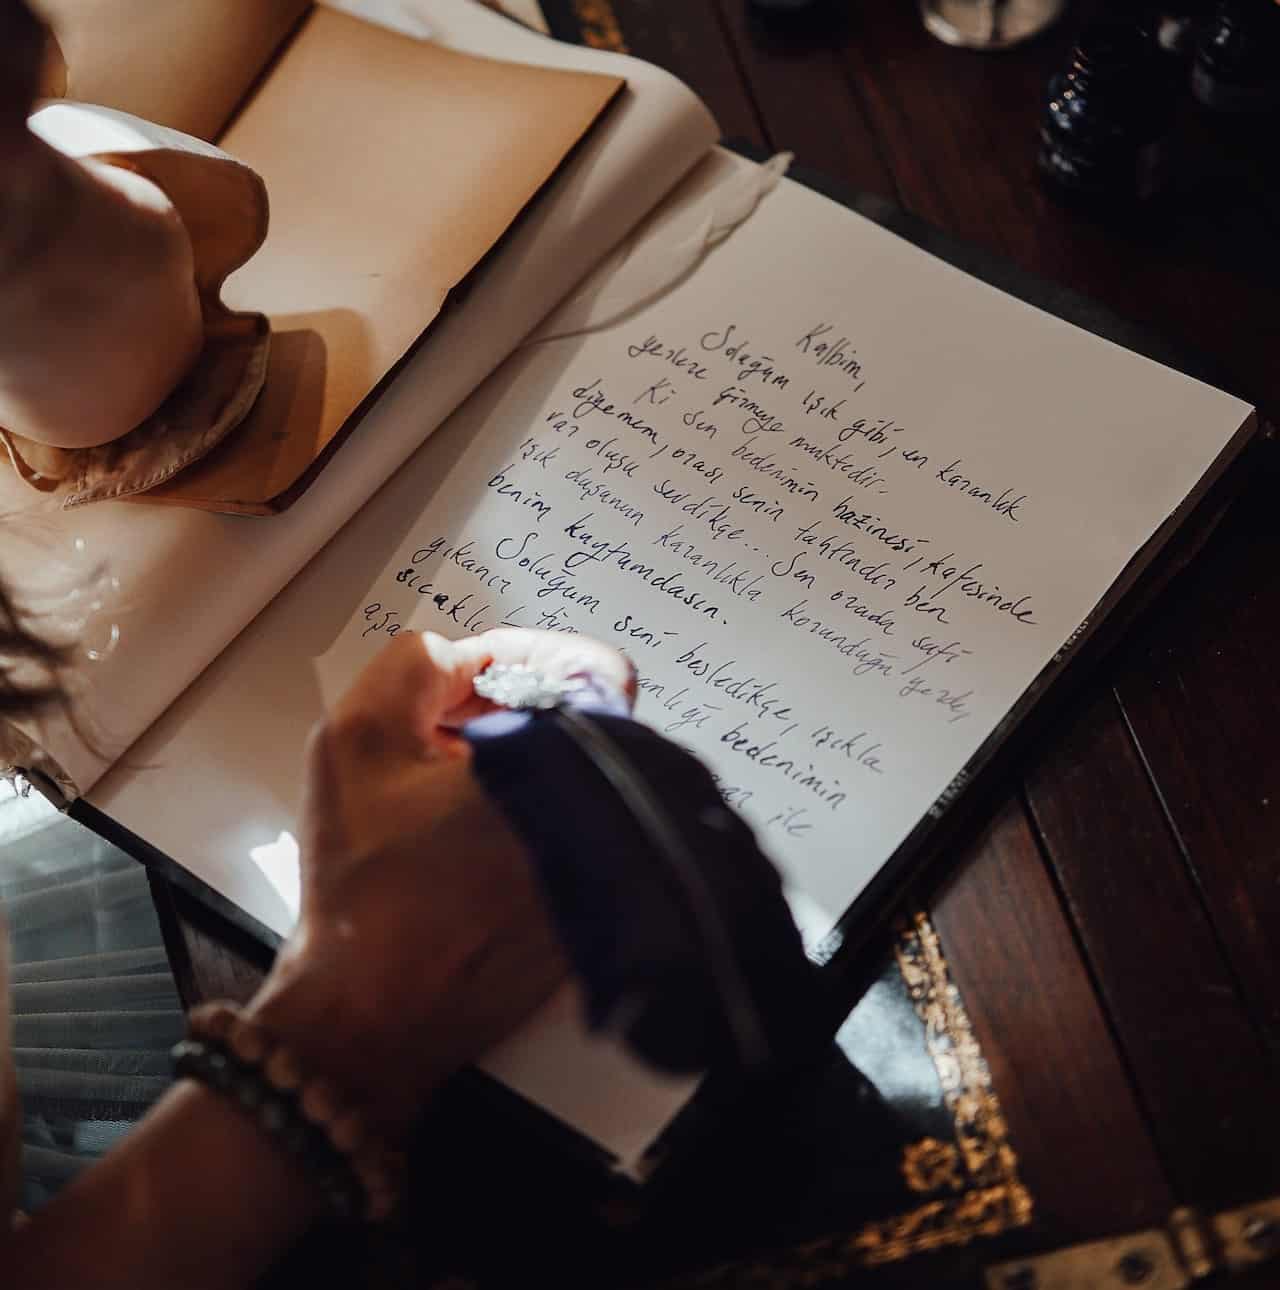 Kalbim,
Soluğum ışık gibi, en karanlık
yerlere girmeye muktedir.
Ki sen bedenimin hazinesi, kafesinde
diyemem, orası senin tahtındır ben
var oluşu sevdikçe... Sen orada safi
ışık duşanın karanlıkla korunduğu yerde,
benim kuytumdasın.
Soluğum seni besledikçe, ışıkla
yıkanır bedenimin
sıcaklı ile